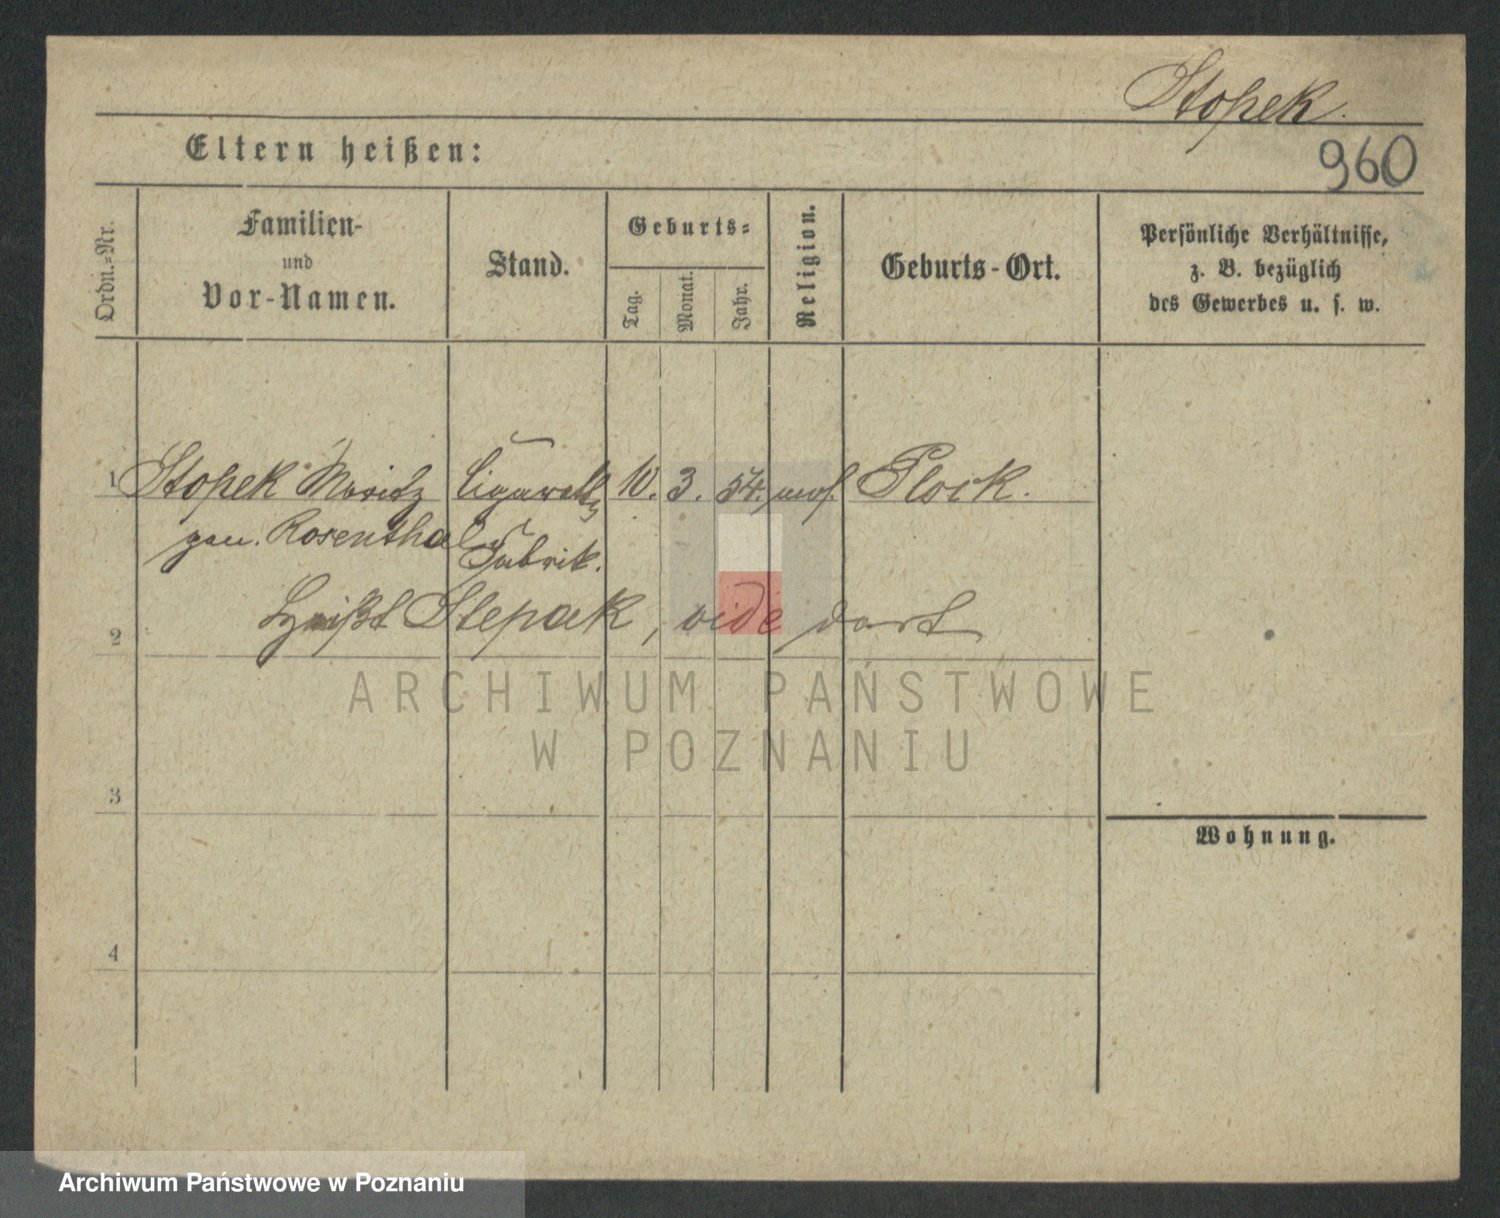 Stopek.
Eltern heißen:
960
Ordn.-Nr.
Familien-
und
Vor-Namen.
Stand.
Geburts-
Tag.
Monat.
Jahr.
Religion.
Geburts-Ort.
Persönliche Verhältnisse,
z. B. bezüglich
des Gewerbes u. s. w.
1 Stopek Moritz Cigarett 10. 3. 54. mos. Plock.
gen. Rosenthal Fabrik.
2 Heißt Slepak, vide dort
ARCHIWUM PAŃSTWOWE
W POZNANIU
3
Wohnung.
4
Archiwum Państwowe w Poznaniu